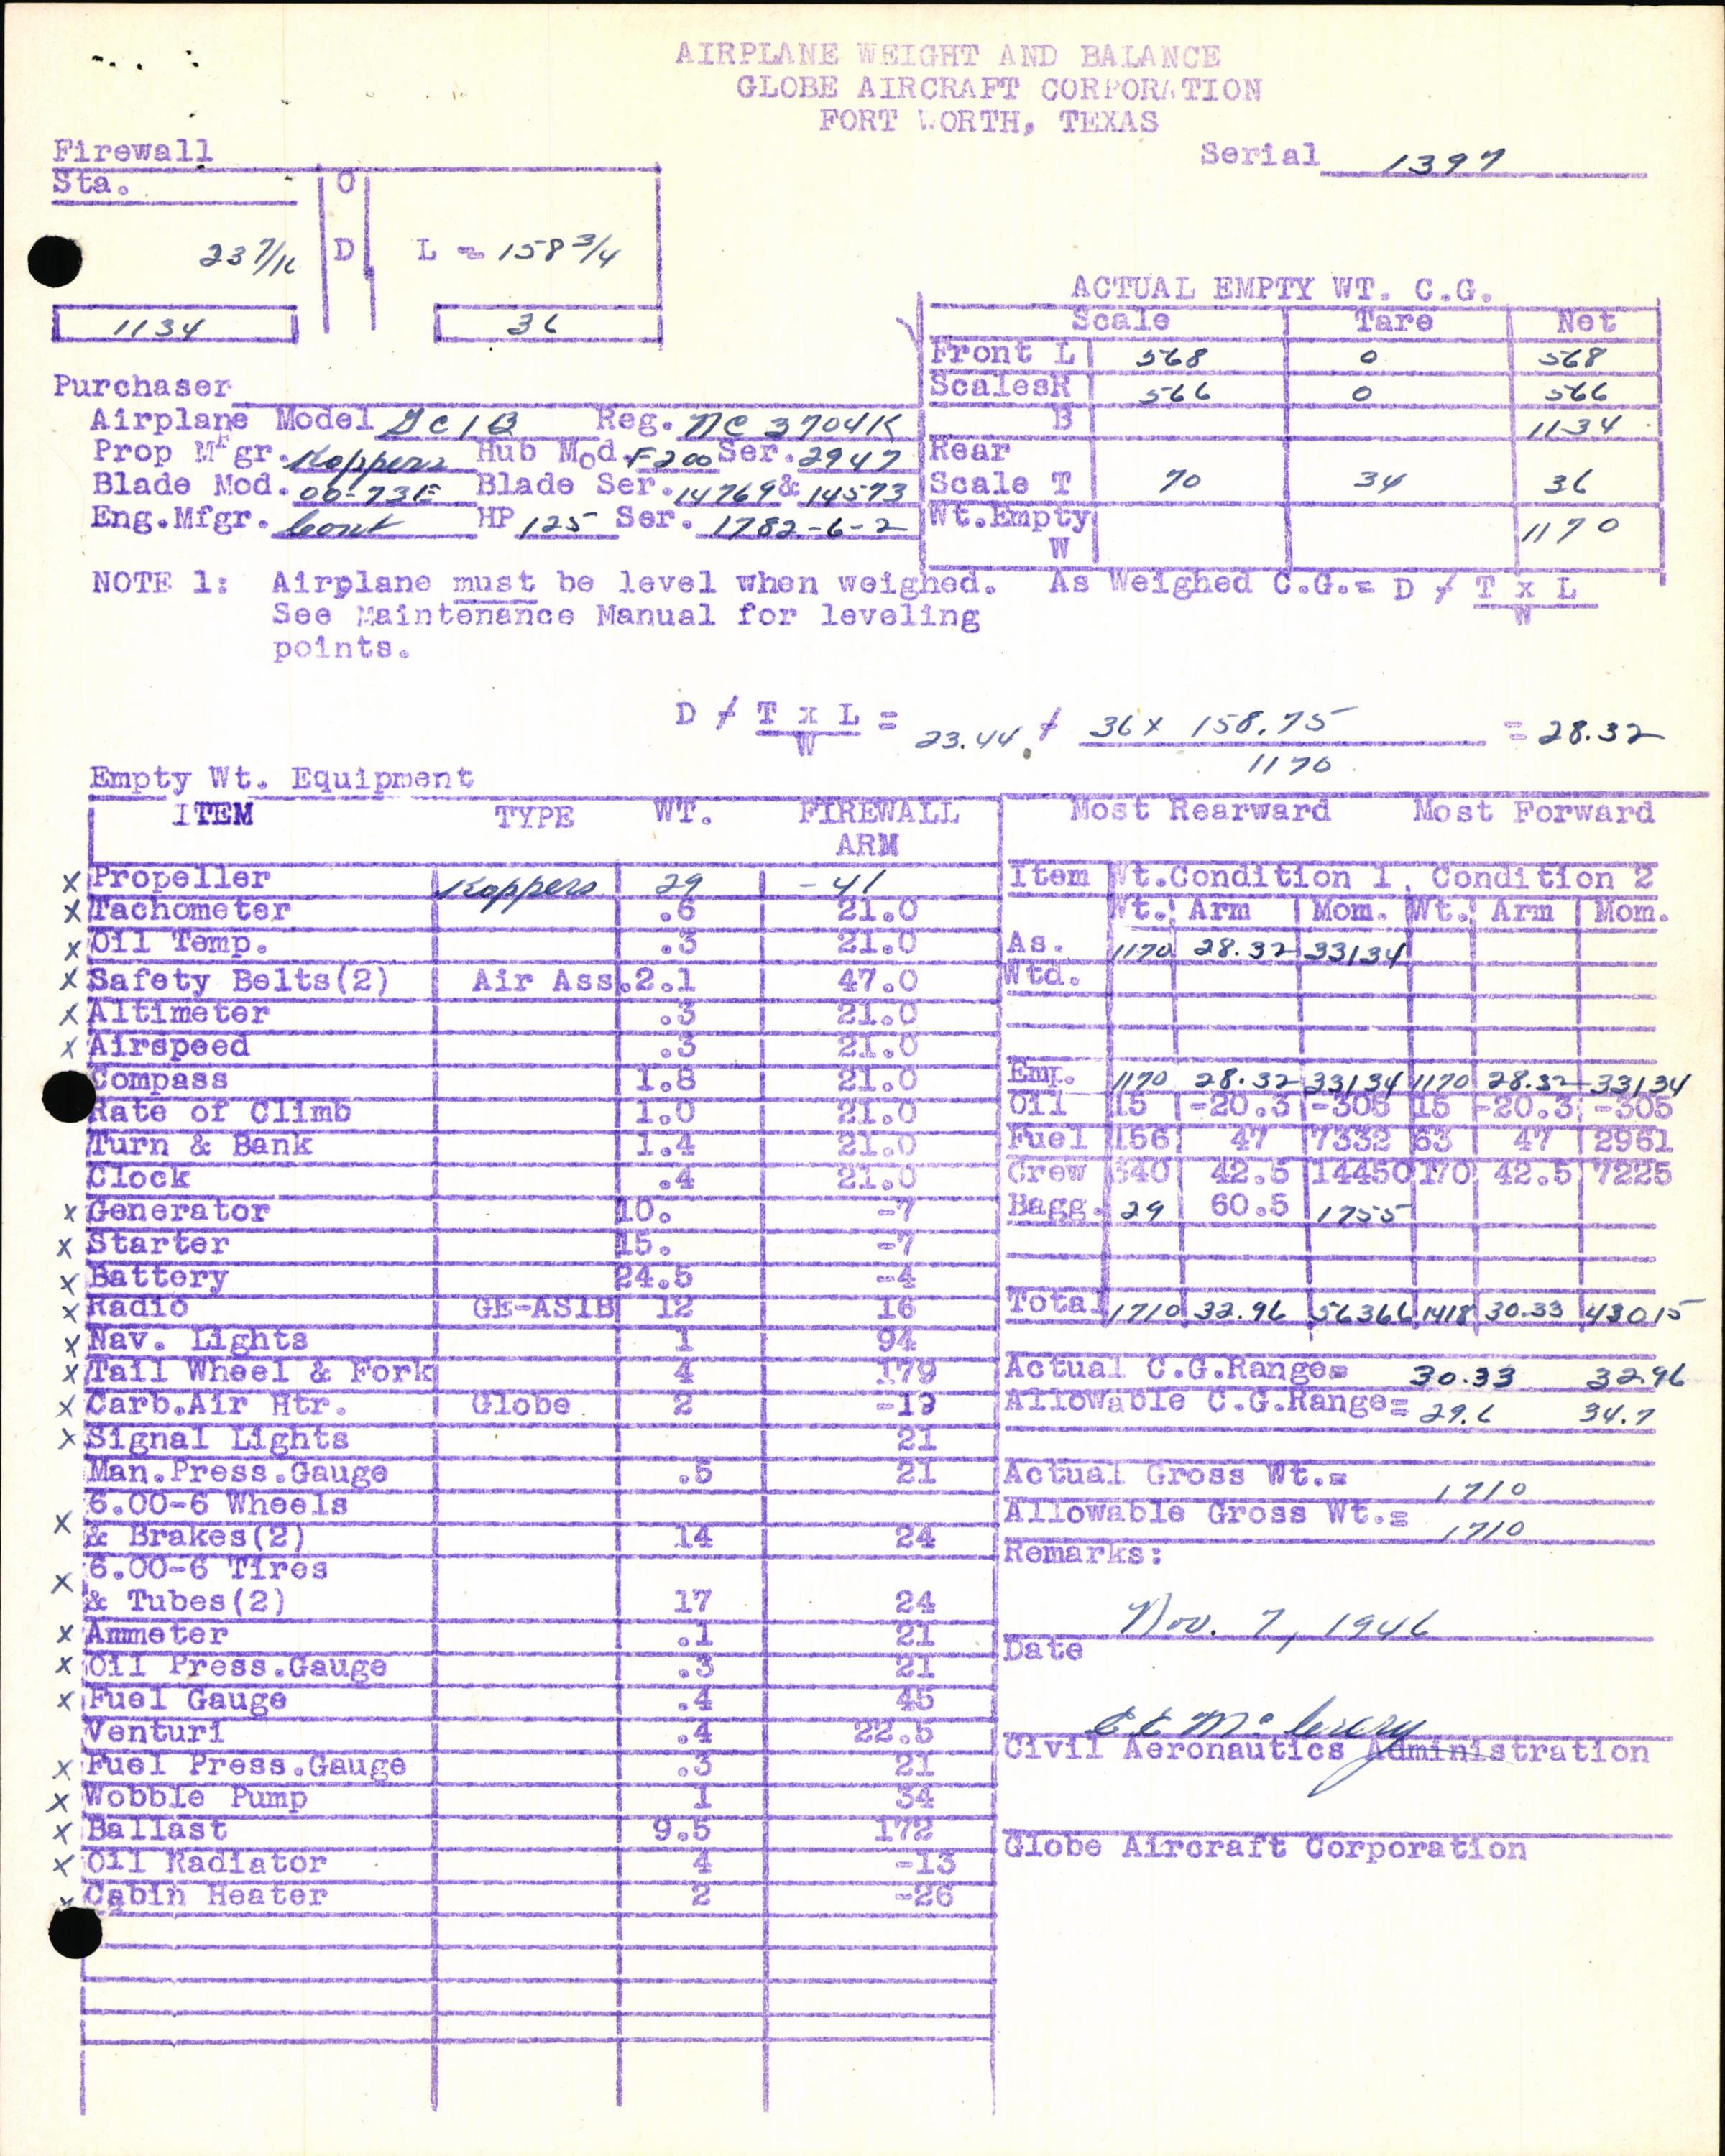 AIRPLANE WEIGHT AND BALANCE
GLOBE AIRCRAFT CORPORATION
FORT WORTH, TEXAS
Serial 1397
Firewall
Sta. O
23 7/16 D L = 158 3/4
1134 36
ACTUAL EMPTY WT. C.G.
Scale Tare Net
Front L 568 0 568
Scales R 566 0 566
B 1134
Rear
Scale T 70 34 36
Wt. Empty
W 1170
Purchaser
Airplane Model GC1B Reg. NC 3704K
Prop Mfgr. Koppers Hub Mod. F200 Ser. 2947
Blade Mod. 00-73E Blade Ser. 14769 & 14573
Eng.Mfgr. Cont HP 125 Ser. 1782-6-2
NOTE 1: Airplane must be level when weighed. As Weighed C.G.= D / T x L
W
See Maintenance Manual for leveling
points.
D / T x L = 23.44 / 36 x 158.75 = 28.32
W 1170
Empty Wt. Equipment
ITEM TYPE WT. FIREWALL
ARM
x Propeller Koppers 29 -41
x Tachometer .6 21.0
x Oil Temp. .3 21.0
x Safety Belts(2) Air Ass. 2.1 47.0
x Altimeter .3 21.0
x Airspeed .3 21.0
Compass 1.8 21.0
Rate of Climb 1.0 21.0
Turn & Bank 1.4 21.0
Clock .4 21.0
x Generator 10. -7
x Starter 15. -7
x Battery 24.5 -4
x Radio GE-AS1B 12 16
x Nav. Lights 1 94
x Tail Wheel & Fork 4 179
x Carb.Air Htr. Globe 2 -19
x Signal Lights 21
Man.Press.Gauge .5 21
6.00-6 Wheels
x & Brakes(2) 14 24
6.00-6 Tires
x & Tubes(2) 17 24
x Ammeter .1 21
x Oil Press.Gauge .3 21
x Fuel Gauge .4 45
Venturi .4 22.5
x Fuel Press.Gauge .3 21
x Wobble Pump 1 34
x Ballast 9.5 172
x Oil Radiator 4 -13
x Cabin Heater 2 -26
Most Rearward Most Forward
Item Wt.Condition 1. Condition 2
Wt. Arm Mom. Wt. Arm Mom.
As. 1170 28.32 33134
Wtd.
Emp. 1170 28.32 33134 1170 28.32 33134
Oil 15 -20.3 -305 15 -20.3 -305
Fuel 156 47 7332 63 47 2961
Crew 340 42.5 14450 170 42.5 7225
Bagg. 29 60.5 1755
Total 1710 32.96 56366 1418 30.33 43015
Actual C.G.Range= 30.33 32.96
Allowable C.G.Range= 29.6 34.7
Actual Gross Wt.= 1710
Allowable Gross Wt.= 1710
Remarks:
Nov. 7, 1946
Date
Civil Aeronautics Administration
Globe Aircraft Corporation